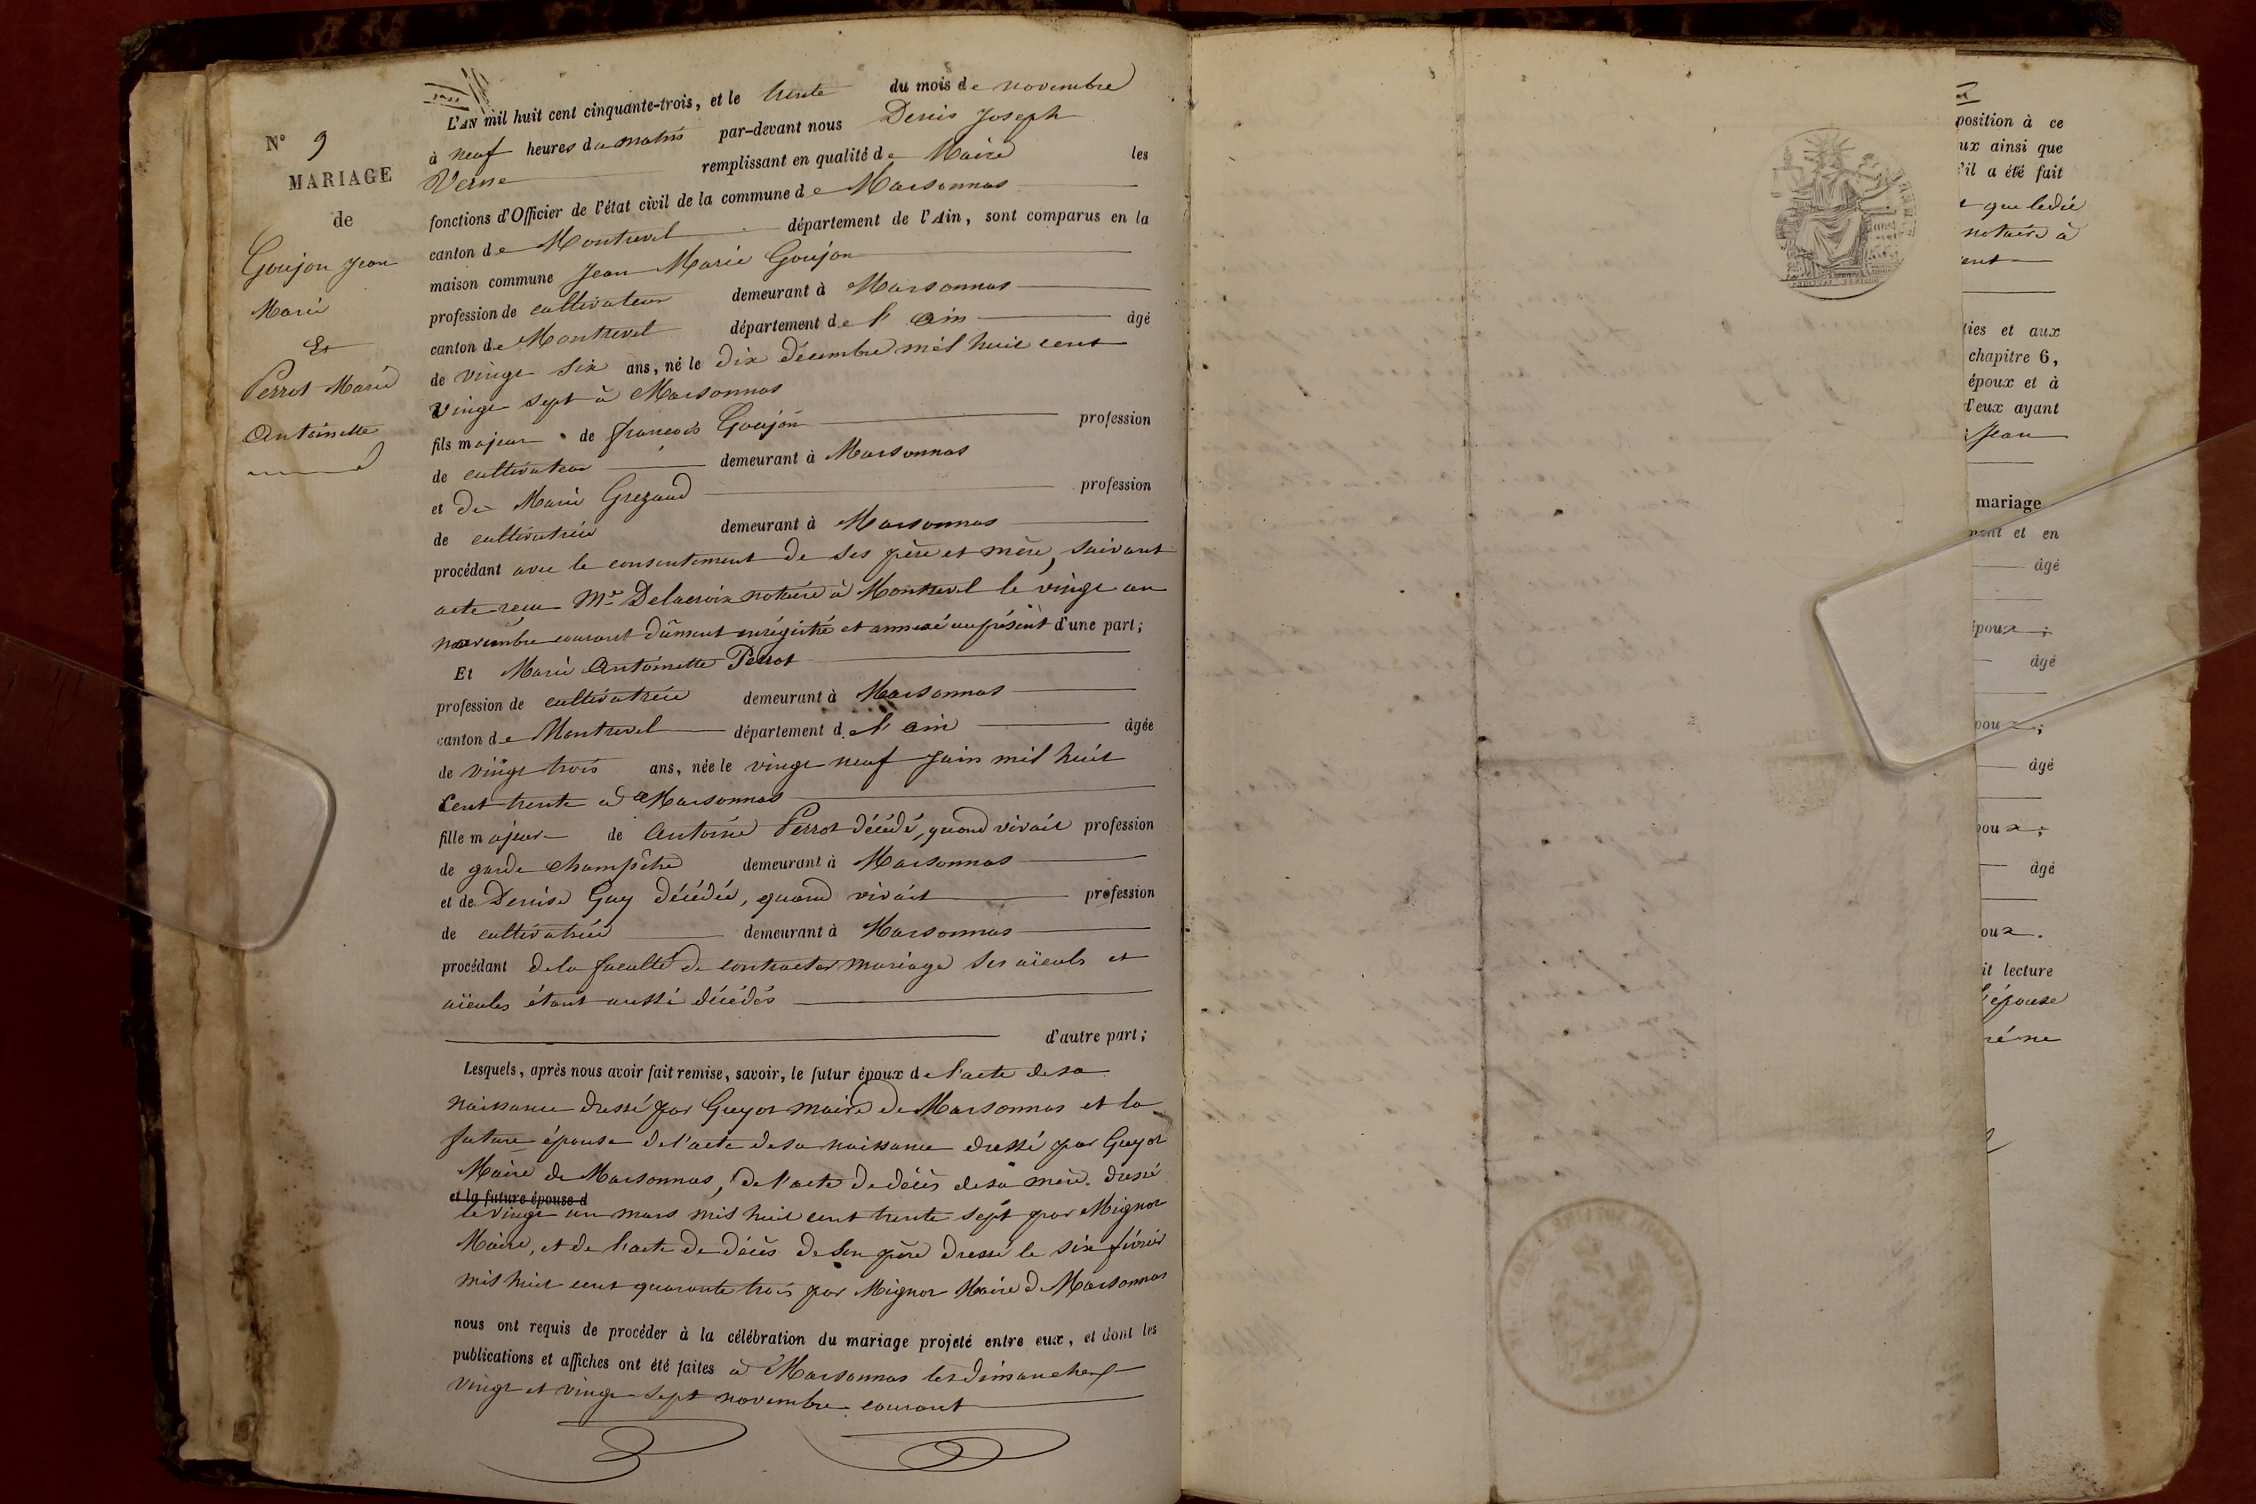 N° 9
MARIAGE
de
Goujon Jean
Marie
Et
Perrot Marie
Antoinette
L'AN mil huit cent cinquante-trois, et le trente du mois de novembre
à neuf heures du matin par-devant nous Denis Joseph
Verne remplissant en qualité de Maire les
fonctions d'Officier de l'état civil de la commune de Marsonnas
canton de Montrevel département de l'Ain, sont comparus en la
maison commune Jean Marie Goujon
profession de cultivateur demeurant à Marsonnas
canton de Montrevel département de l'ain âgé
de vingt six ans, né le dix décembre mil huit cent
vingt sept à Marsonnas
fils majeur de francois Goujon profession
de cultivateur demeurant à Marsonnas
et de Marie Grezaud profession
de cultivatrice demeurant à Marsonnas
procédant avec le consentement de ses père et mère, suivant
acte reçu Me Delacroix notaire à Montrevel le vingt un
novembre courant dûment enrégistré et annexé au présent d'une part;
Et Marie Antoinette Perrot
profession de cultivatrice demeurant à Marsonnas
canton de Montrevel département de l'ain âgée
de vingt trois ans, née le vingt neuf Juin mil huit
Cent trente à Marsonnas
fille majeure de Antoine Perrot décédé, quand vivait profession
de garde champêtre demeurant à Marsonnas
et de Denise Guy décédée, quand vivait profession
de cultivatrice demeurant à Marsonnas
procédant de la faculté de contracter mariage ses aïeuls et
aïeules étant aussi décédés
d'autre part;
Lesquels, après nous avoir fait remise, savoir, le futur époux de l'acte de sa
naissance dressé par Guyot maire de Marsonnas et la
future épouse de l'acte de sa naissance dressé par Guyot
Maire de Marsonnas, de l'acte de décès de sa mère dressé
et la future épouse d
le vingt un mars mil huit cent trente sept par Mignot
Maire, et de l'acte de décès de son père dressé le six février
mil huit cent quarante trois par Mignot Maire de Marsonnas
nous ont requis de procéder à la célébration du mariage projeté entre eux, et dont les
publications et affiches ont été faites à Marsonnas les dimanches
vingt et vingt sept novembre courant
position à ce
ux ainsi que
'il a été fait
que ledit
notaire à
ent
ties et aux
chapitre 6,
époux et à
d'eux ayant
Jean
mariage
ment et en
âgé
époux;
âgé
poux;
âgé
oux;
âgé
oux.
it lecture
l'épouse